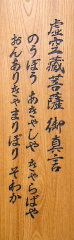 虚空蔵菩薩 御真言
のうぼう あきゃしや きゃらばや
おんありきゃまりぼり そわか